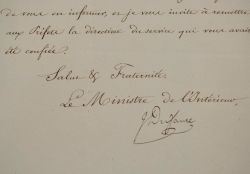 de vous en informer, et je vous invite à remettre
aux Préfets la direction du service qui vous avait
été confiée.
Salut & Fraternité.
Le Ministre de l'Intérieur,
J Dufaure